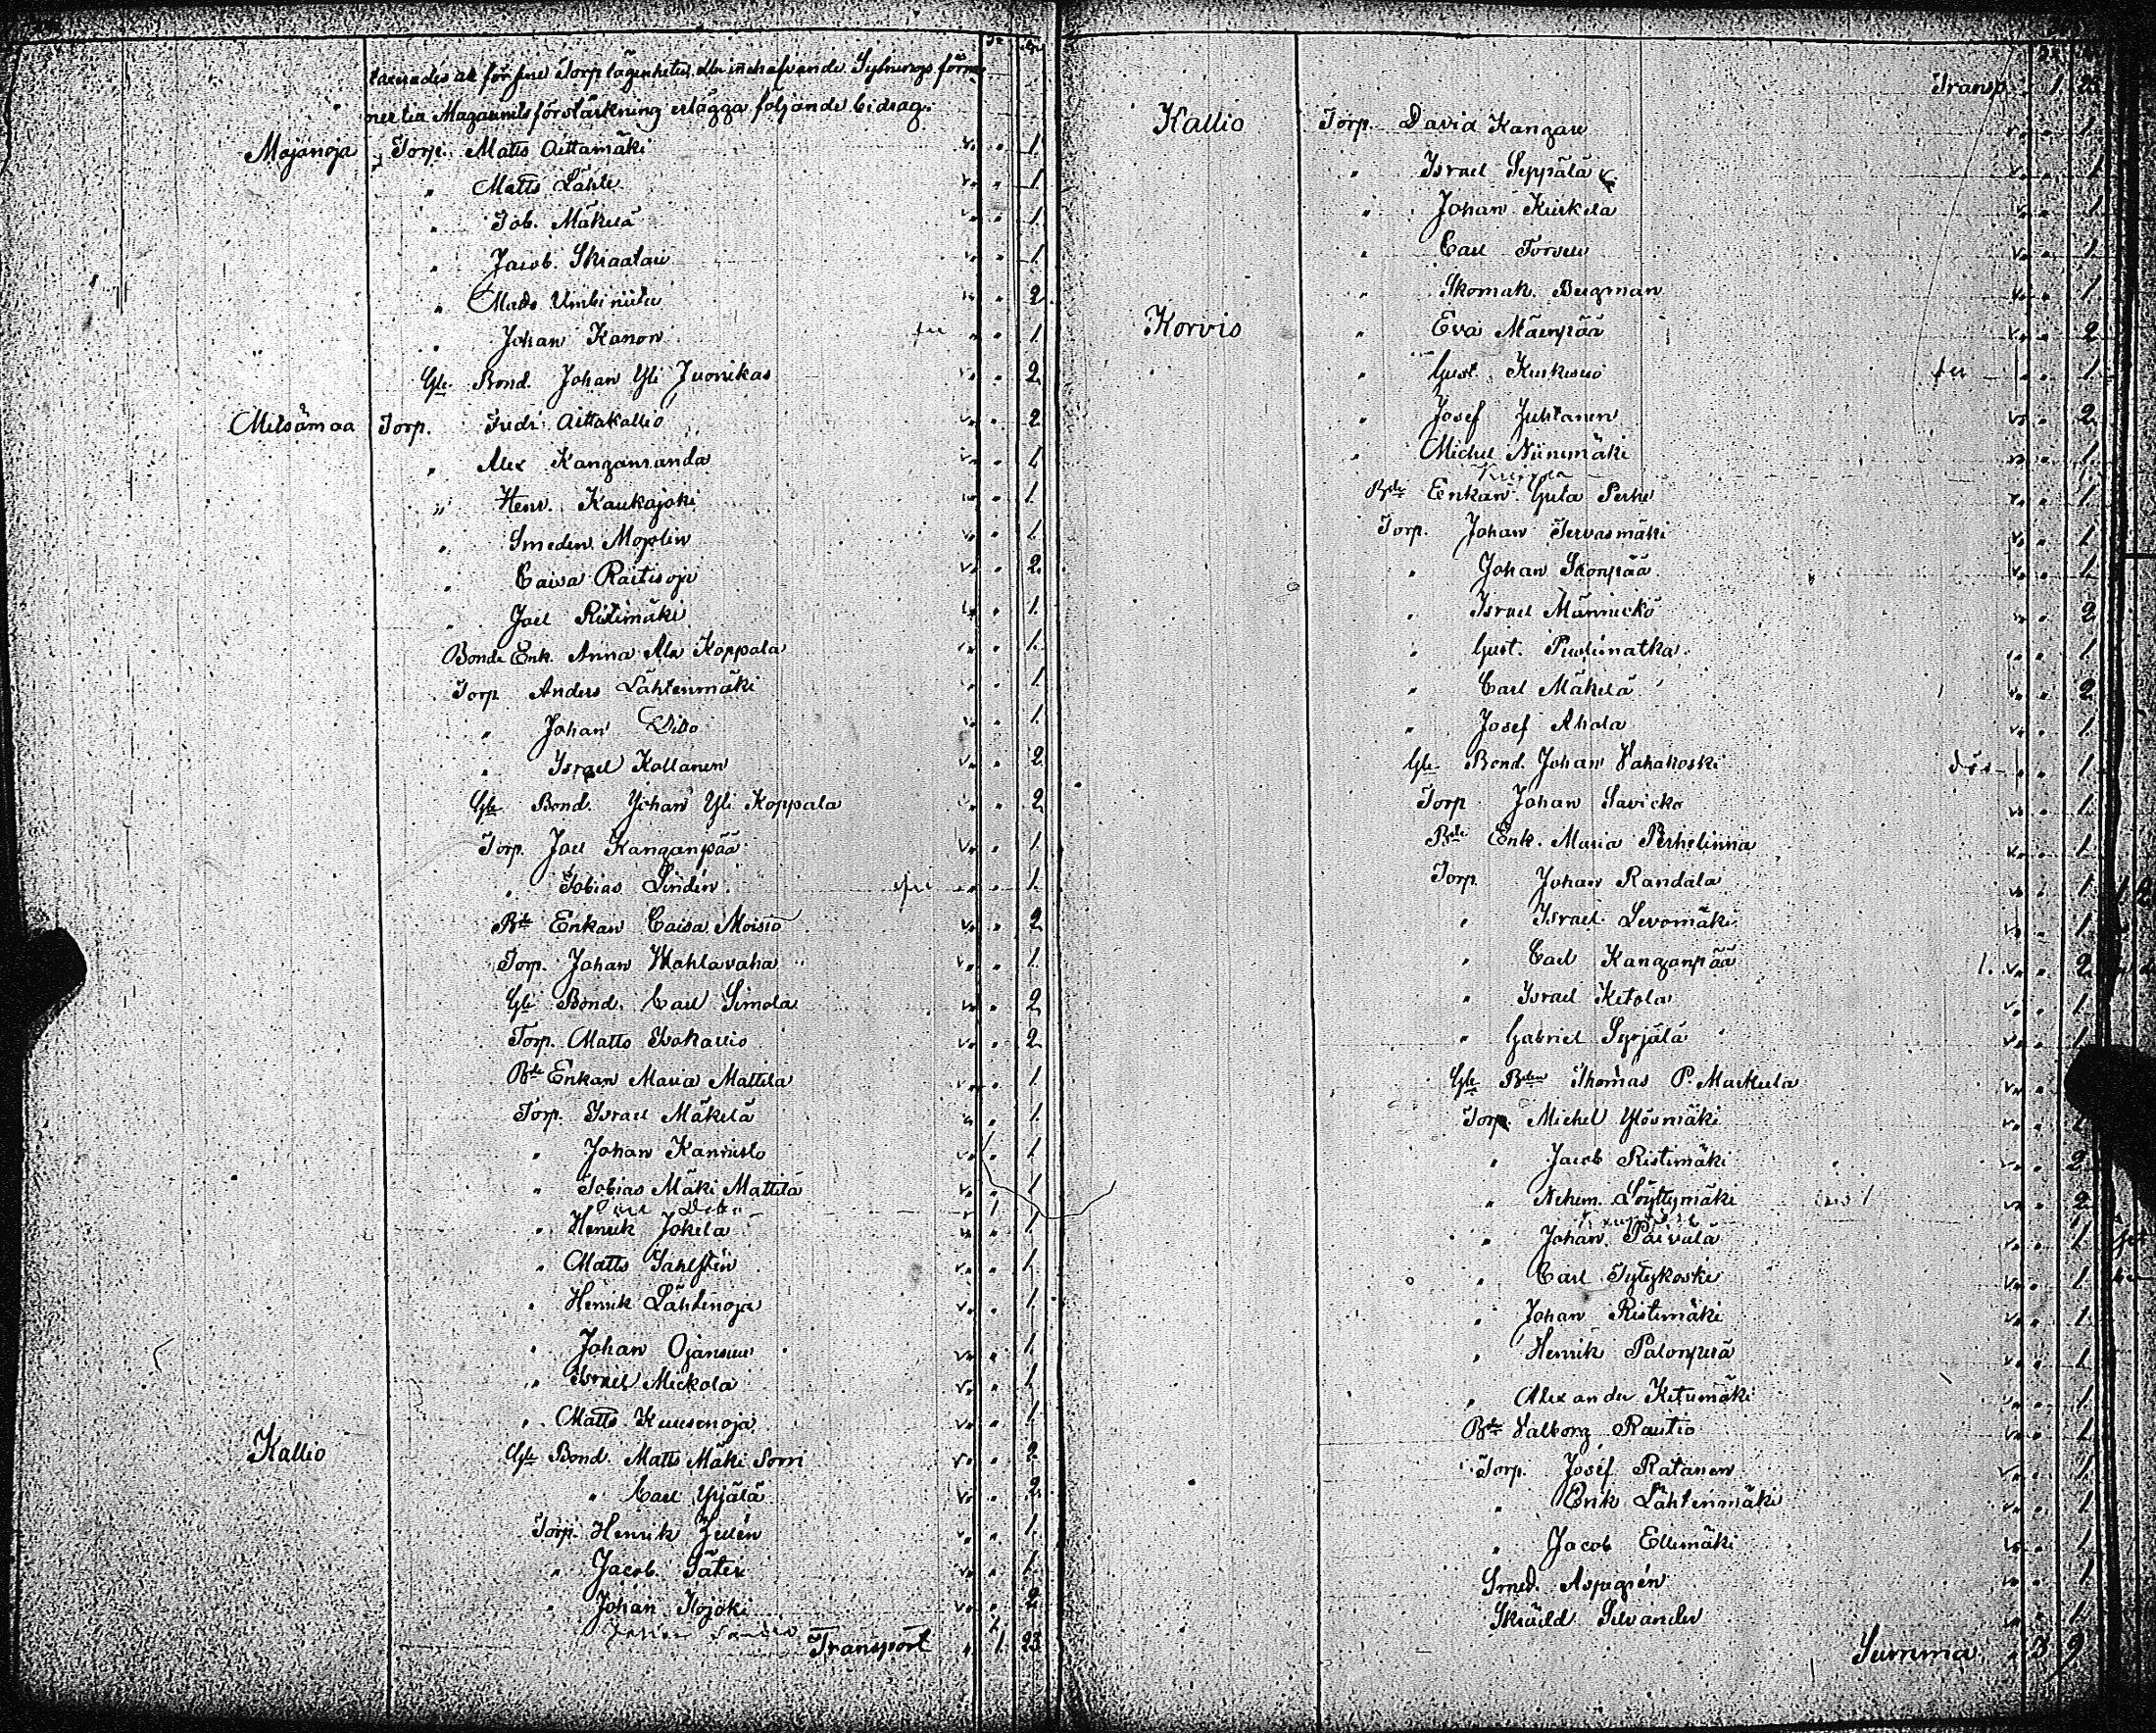 taxerades att för sine Torplägenheter eller innehafvande Sytnings förmå
ner till Magasinets förstärkning erlägga följande bidrag.
Majanoja Torp. Matts Aittamäki 1.
" Matts Lähte 1
" Tob. Mäkelä 1.
" Jacob Skraatari 1
" Matts Umbiniitu 2.
" Johan Kanon 1
Gle. Bond. Johan Yli Juonikas 2
Metsämaa Torp. Fredr. Aittakallio 2
" Alex Kanganranda 1
" Henr. Kaukajoki 1.
" Smeden Mojolin 1.
" Caisa Raitisoja 2.
" Joel Ristimäki 1.
Bonde Enk. Anna Ala Koppala 1.
Torp Anders Lähtenmäki 1
" Johan Dito 1.
" Israel Kallanen 2
Gle Bond. Johan Yli Koppala 2
Torp. Joel Kanganpää 1.
" Tobias Lindén 1.
Bde Enkan Caisa Moisio 2
Torp. Johan Mahlavaha 1
Gle Bond. Carl Simola 2
Torp. Matts Isokallio 2
Bde Enkan Maria Mattila 1
Torp. Israel Mäkelä 1.
" Johan Kannisto 1
" Tobias Mäki Mattila 1
" Henrik Jokela 1.
" Matts Sahlstén 1.
" Henrik Lähtenoja 1.
" Johan Ojansuu 1.
" Israel Mickola 1
" Matts Kuusenoja 1
Kallio Gle Bond. Matts Mäki Sorri 2.
" Carl Yrjälä 2.
Torp. Henrik Zellén 1.
" Jacob Säteri 1.
" Johan Ilojoki 2
Transport 1. 23.
Transp. 1. 23
Kallio Torp. David Kangari 1
" Israel Seppälä 1
" Johan Kirkela 1
" Carl Torvell 1.
" Skomak. Bergman 1
Korvio " Eva Mäenpää 2
" Gust. Kuikisuo 1.
" Josef Juhtanen 2.
" Michel Niinimäki 1.
Bde Enkan Greta Perhe 1
Torp. Johan Tervasmäki 1
" Johan Skonpää 1
" Israel Männickö 2
" Gust. Puolimatka 1
" Carl Mäkelä 2
" Josef Ahola 1.
Gle. Bond. Johan Vahakoski 1
Torp Johan Savicko 1.
Bde Enk. Maria Perhelinna 1
Torp. Johan Randala 1
" Israel Levomäki 1
" Carl Kanganpää 1. 2
" Israel Ketola 1.
" Gabriel Syrjälä 1
Gle Bden Thomas P. Markula
Torp. Michel Ylösmäki
" Jacob Ristimäki 2
" Nehem. Löyttymäki 2
" Johan Päivälä 1
" Carl Tytykoski 1.
" Johan Ristimäki 1
" Henrik Palonperä 1
" Alexander Ketumäki 1
Bde Valborg Rautio 1
Torp. Josef Ratanen 1
" Erik Lähtenmäki 1
" Jacob Ellimäki 1
Smed. Aspegrén 1
Skrädd Silvander 1
Summa 3 9